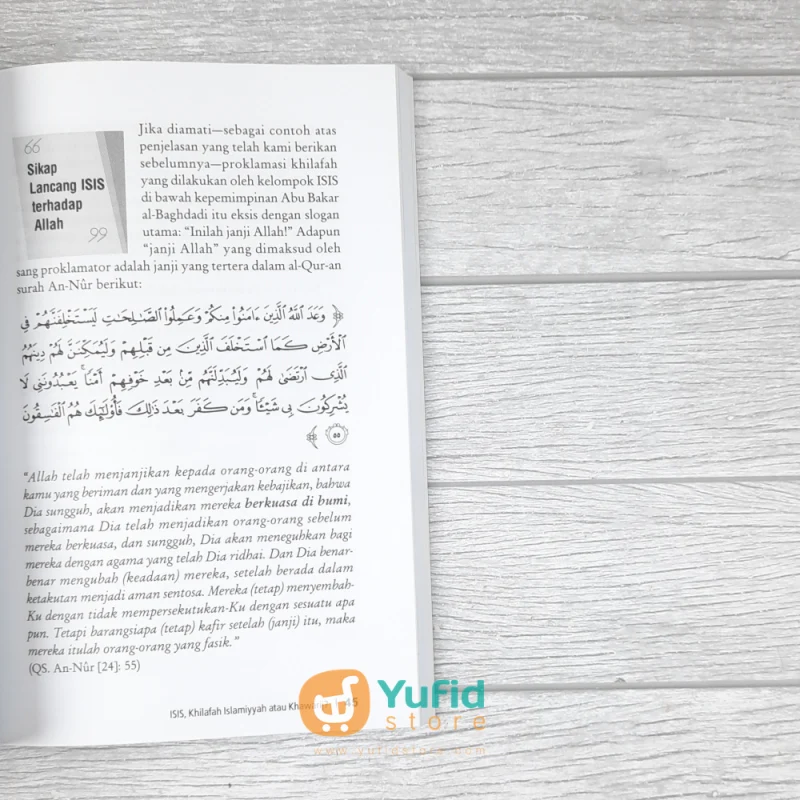 66
Sikap
Lancang ISIS
terhadap
Allah
99
Jika diamati—sebagai contoh atas
penjelasan yang telah kami berikan
sebelumnya—proklamasi khilafah
yang dilakukan oleh kelompok ISIS
di bawah kepemimpinan Abu Bakar
al-Baghdadi itu eksis dengan slogan
utama: “Inilah janji Allah!” Adapun
“janji Allah” yang dimaksud oleh
sang proklamator adalah janji yang tertera dalam al-Qur-an
surah An-Nûr berikut:
﴿ وَعَدَ اللَّهُ الَّذِينَ ءَامَنُوا۟ مِنكُمْ وَعَمِلُوا۟ الصَّـٰلِحَـٰتِ لَيَسْتَخْلِفَنَّهُمْ فِى
الْأَرْضِ كَمَا اسْتَخْلَفَ الَّذِينَ مِن قَبْلِهِمْ وَلَيُمَكِّنَنَّ لَهُمْ دِينَهُمُ
الَّذِى ارْتَضَىٰ لَهُمْ وَلَيُبَدِّلَنَّهُم مِّنۢ بَعْدِ خَوْفِهِمْ أَمْنًا ۚ يَعْبُدُونَنِى لَا
يُشْرِكُونَ بِى شَيْـًٔا ۚ وَمَن كَفَرَ بَعْدَ ذَٰلِكَ فَأُو۟لَـٰٓئِكَ هُمُ الْفَـٰسِقُونَ
٥٥ ﴾
“Allah telah menjanjikan kepada orang-orang di antara
kamu yang beriman dan yang mengerjakan kebajikan, bahwa
Dia sungguh, akan menjadikan mereka berkuasa di bumi,
sebagaimana Dia telah menjadikan orang-orang sebelum
mereka berkuasa, dan sungguh, Dia akan meneguhkan bagi
mereka dengan agama yang telah Dia ridhai. Dan Dia benar-
benar mengubah (keadaan) mereka, setelah berada dalam
ketakutan menjadi aman sentosa. Mereka (tetap) menyembah-
Ku dengan tidak mempersekutukan-Ku dengan sesuatu apa
pun. Tetapi barangsiapa (tetap) kafir setelah (janji) itu, maka
mereka itulah orang-orang yang fasik.”
(QS. An-Nûr [24]: 55)
ISIS, Khilafah Islamiyyah atau Khawarij? | 45
Yufid
store
www.yufidstore.com